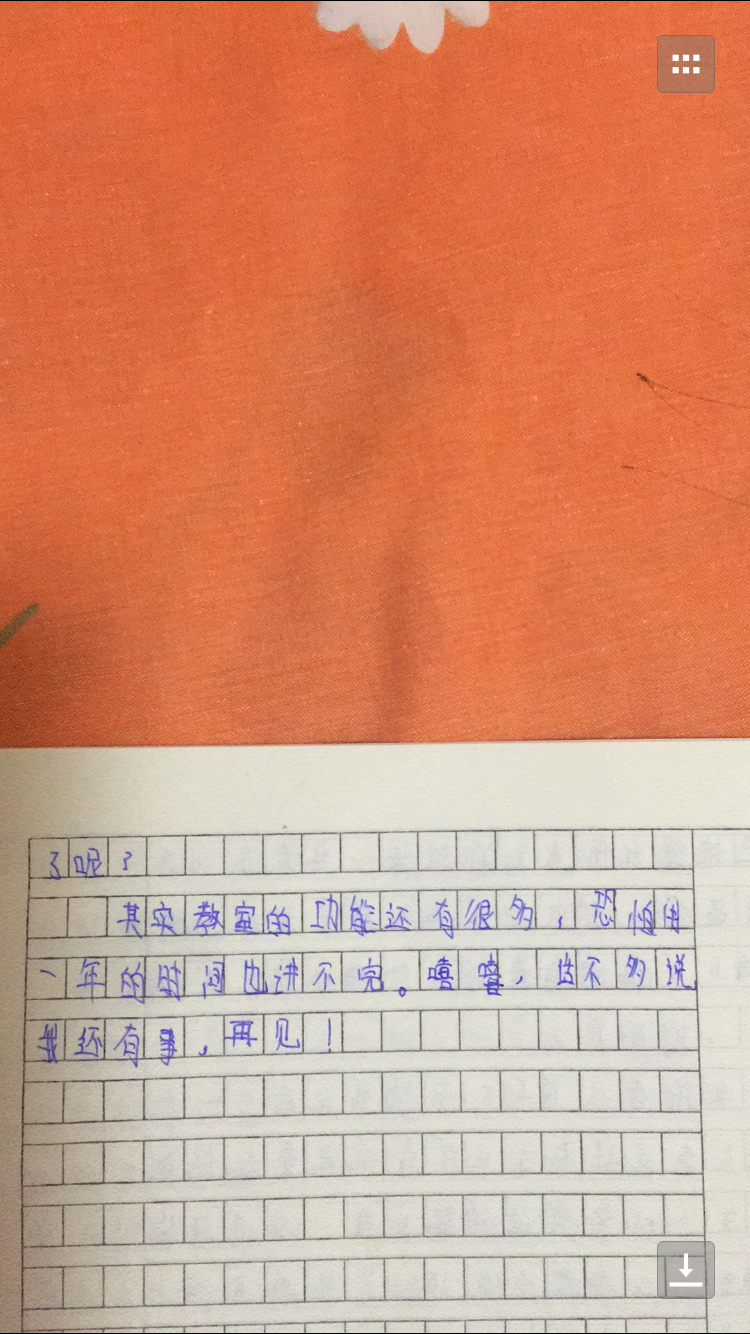 了呢?
其实教室的功能还有很多,恐怕用
一年的时间也讲不完。嘻嘻,话不多说
我还有事,再见!